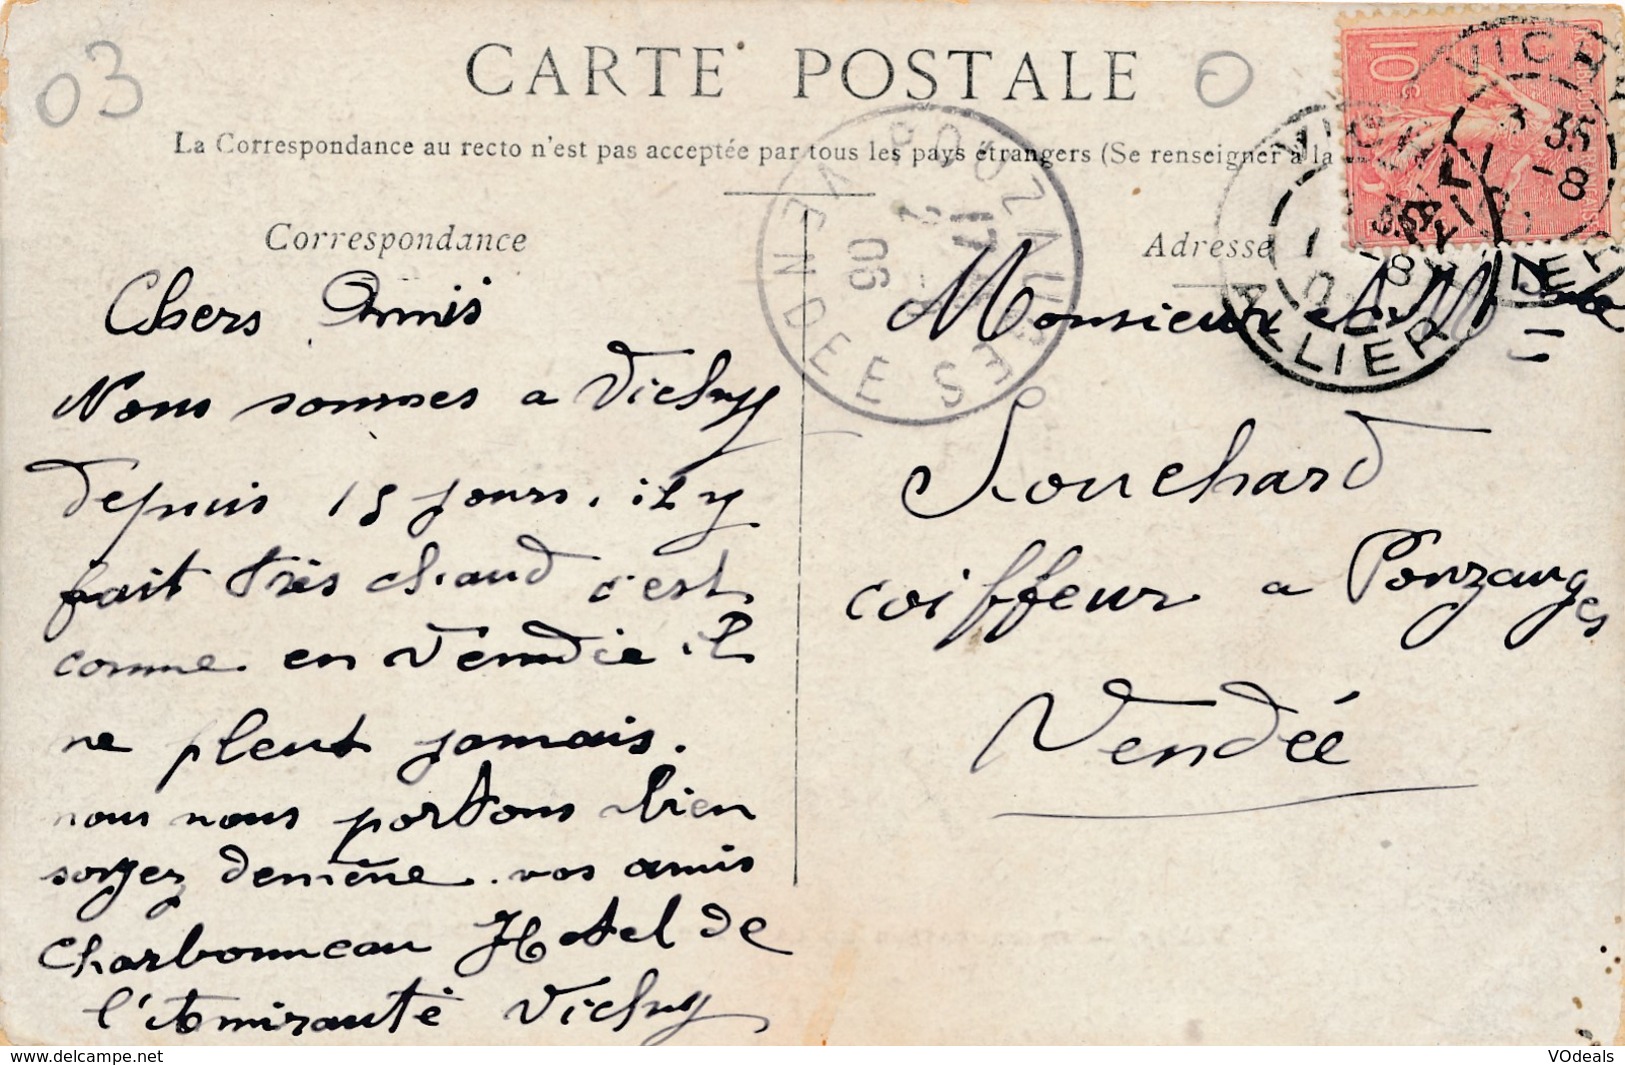 03
CARTE POSTALE
La Correspondance au recto n'est pas acceptée par tous les pays étrangers (Se renseigner à la
Correspondance
Adresse
10c
VICHY
ALLIER
POUZAUGES
VENDEE
17
06
Chers Amis
Nous sommes a Vichy
depuis 15 jours. il y
fait très chaud c'est
comme en Vendie il
ne pleut jamais.
nous nous portons bien
soyez demême. vos amis
Charbonneau Hotel de
l'Amirauté Vichy
Monsieur et Mme
Souchard
coiffeur a Pouzauges
Vendéé
www.delcampe.net
VOdeals